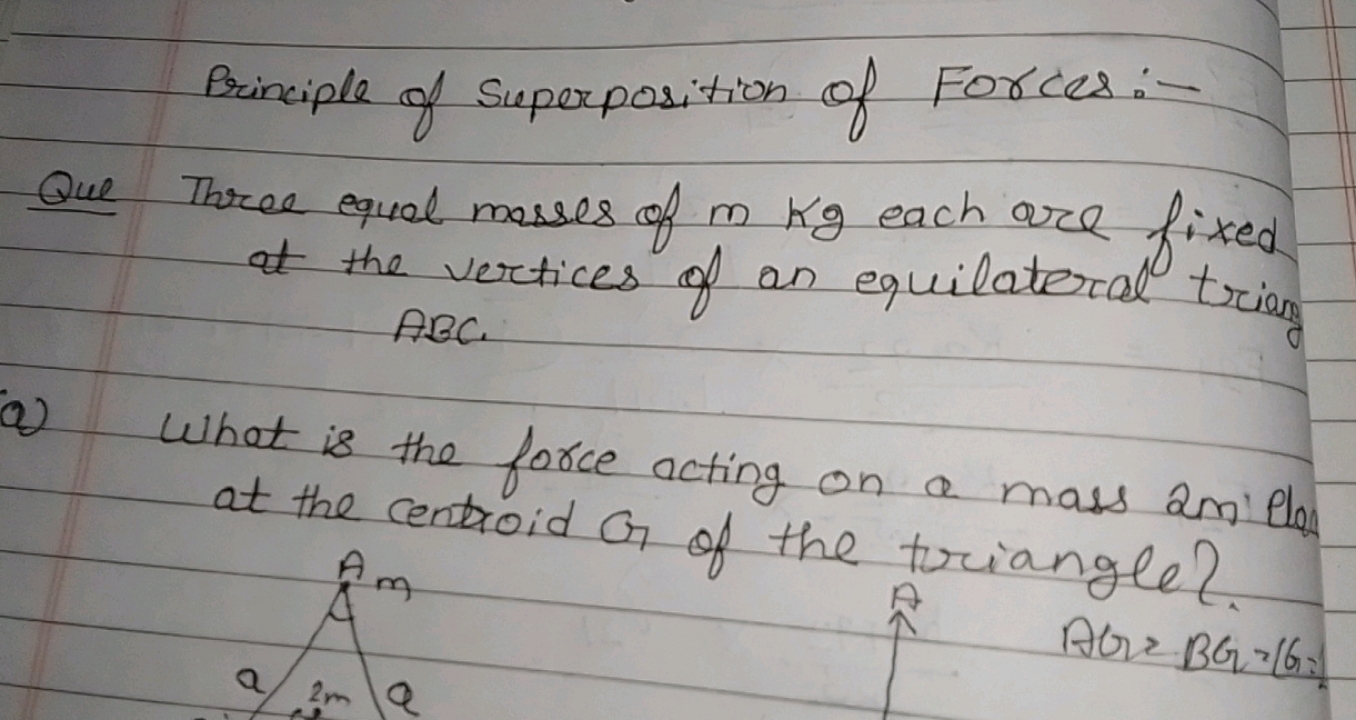 Principle of Superposition of Forces :-
Que Three equal masses of m Kg each are fixed
at the vertices of an equilateral triang
ABC.
a) What is the force acting on a mass 2m
at the centroid G of the triangle?
A m
A
AG = BG = CG =
a 2m a